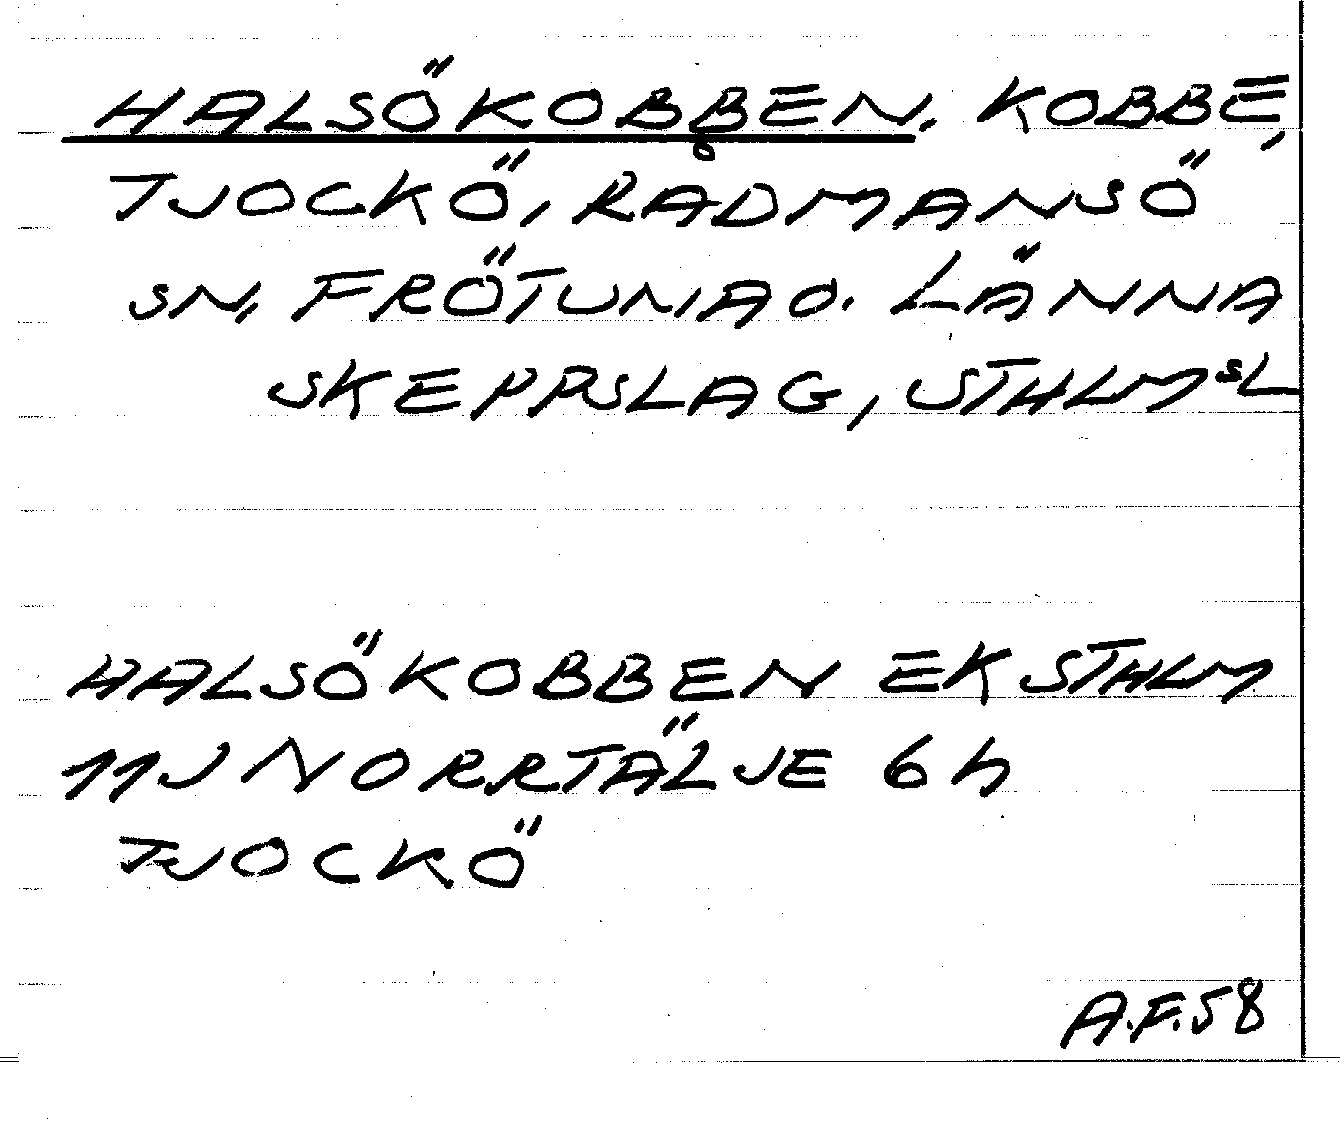 HALSÖKOBBEN, KOBBE,
TJOCKÖ, RÅDMANSÖ
SN, FRÖTUNA O. LÄNNA
SKEPPSLAG, STHLMSL
HALSÖKOBBEN EK STHLM
11J NORRTÄLJE 6h
TJOCKÖ
A.F.58